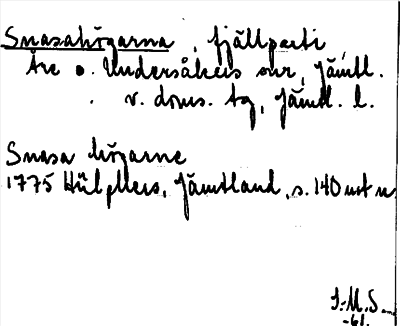 Snasahögarna, fjällparti,
Åre o. Undersåkers snr, Jämtl.
v. doms. tg, Jämtl. l.
Snasa högarne
1775 Hülphers, Jämtland, s. 140 not n
S.M.S.
-61.